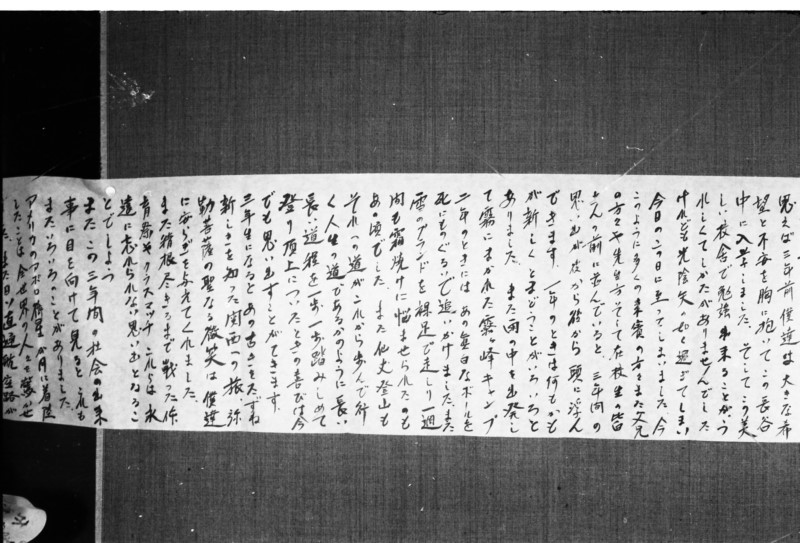 思えば三年前僕達は大きな希
望と不安を胸に抱いてこの長谷
中に入学しました。そしてこの美
しい校舎で勉強出来ることがう
れしくてしかたがありませんでした
けれども光陰矢の如く過ぎてしまい
今日のこの日に至ってしまいました 今
このように多くの来賓の方々また父兄
の方々や先生方そして在校生の皆
さんの前に並んでいると 三年間の
思い出が次から次から頭に浮ん
できます。一年のときは何もかも
が新しくとまどうことがいろいろと
ありました。また雨の中を出発し
て霧にまかれた霧ヶ峰キャンプ
二年のときには あの真白なボールを
死にものぐるいで追いかけました。また
雪のグランドを裸足で走しり一週
間も霜焼けに悩ませられたのも
あの頃でした。また 登山も
それへの道がこれから歩んで行
く人生の道であるかのように長い
長い道程を一歩一歩踏みしめて
登り頂上についたときの喜びは今
でも思い出すことができます。
三年生になると あの古きをたずね
新しきを知った関西への旅 弥
勒菩薩の聖なる微笑は僕達
に安らぎを与えてくれました。
また精根尽きるまで戦った体
育祭やクラスマッチ これらは永
遠に忘れられない思い出となるこ
とでしょう
またこの三年間の社会の出来
事に目を向けて見ると これも
またいろいろのことがありました。
アメリカのアポロ 月に着陸
したことは全世界の人々を驚かせ